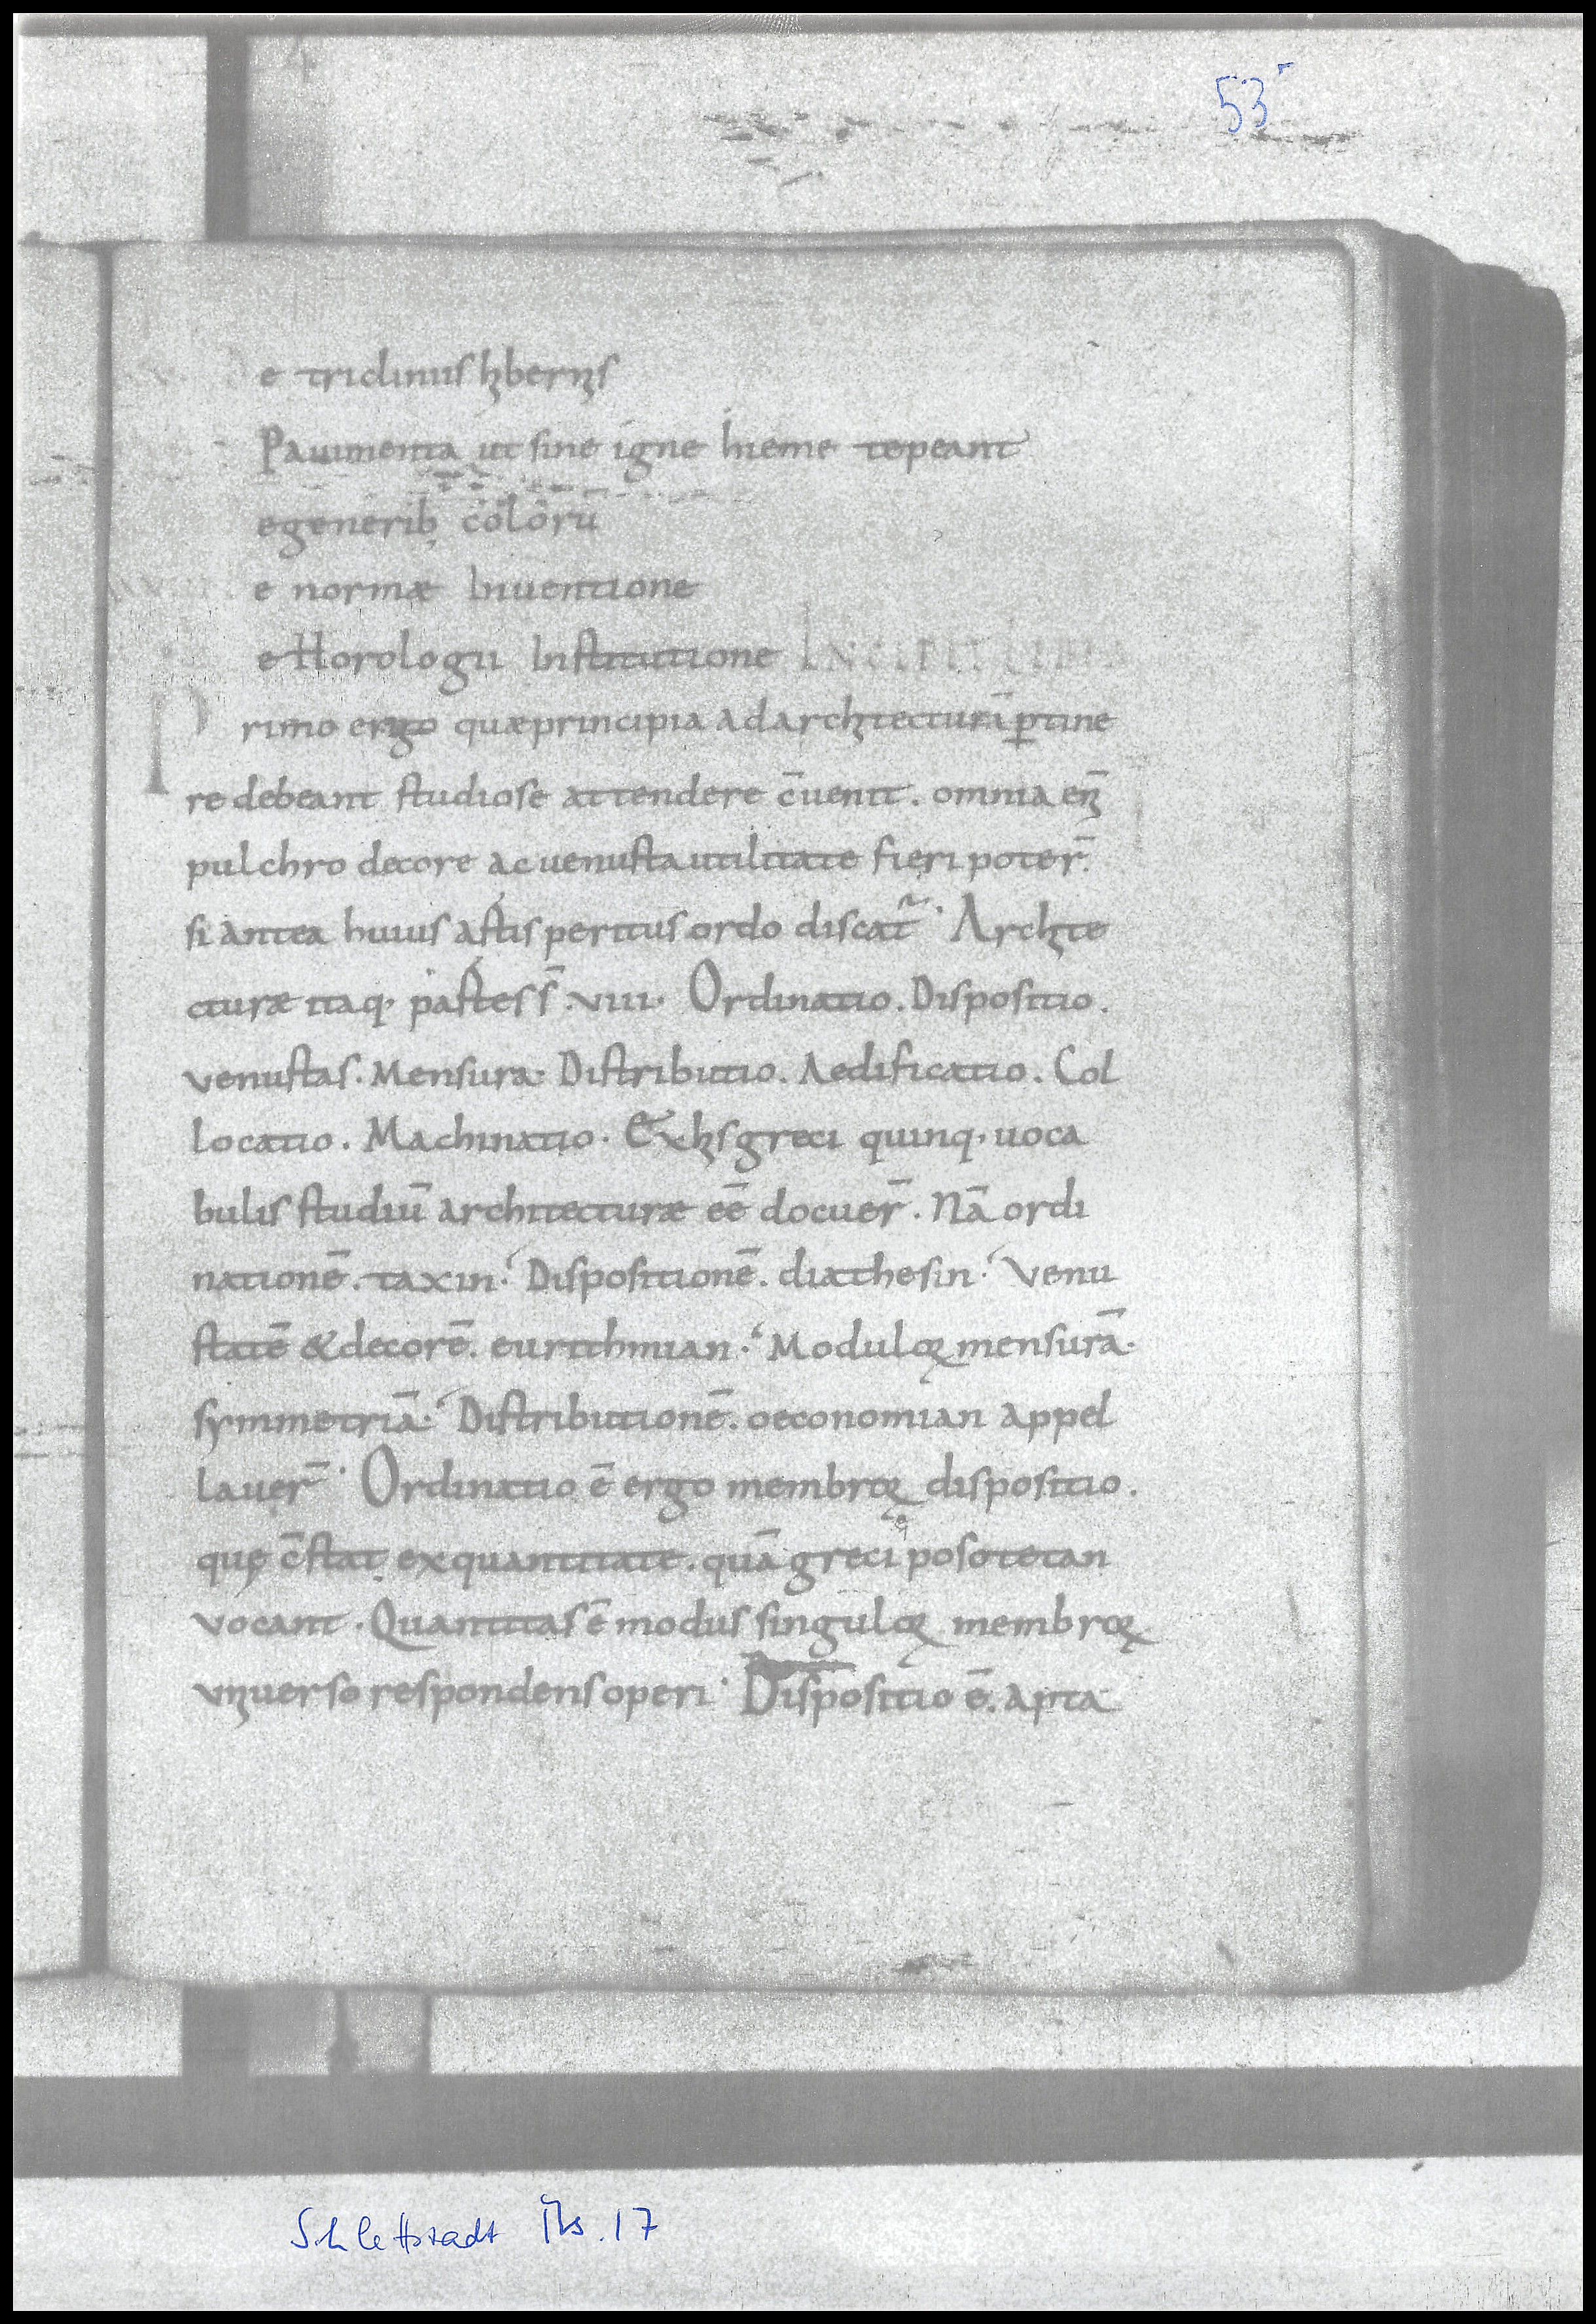 53r
e tricliniis hibernis
Pauimenta ut sine igne hieme tepeant
e generib; colorū
e normæ Inuentione
e Horologii Institutione INCIPIT LIBER
Primo ergo quæ principia ad architecturā ꝑtine
re debeant studiose attendere c̄uenit. omnia eni̅
pulchro decore ac uenusta utilitate fieri poter̄.
si antea huius artis peritus ordo discat᷑. Archite
cturæ itaq· partes s̄ .viii. Ordinatio. Dispositio.
venustas. Mensura. Distributio. Aedificatio. Col
locatio. Machinatio. Ex his greci quinq· uoca
bulis studiū architecturæ eē docuer̄. Nā ordi
nationē. taxin. Dispositionē. diathesin. Venu
statē & decorē. eurithmian. Moduloꝝ mensurā.
symmetriā. Distributionē. oeconomian appel
lauer̄. Ordinatio ē ergo membroꝝ dispositio.
quę c̄stat ex quantitate. quā greci posotetan
vocant. Quantitas ē modus singuloꝝ membroꝝ
vniuerso respondens operi. Dispositio ē. apta
Schlettstadt Hs. 17